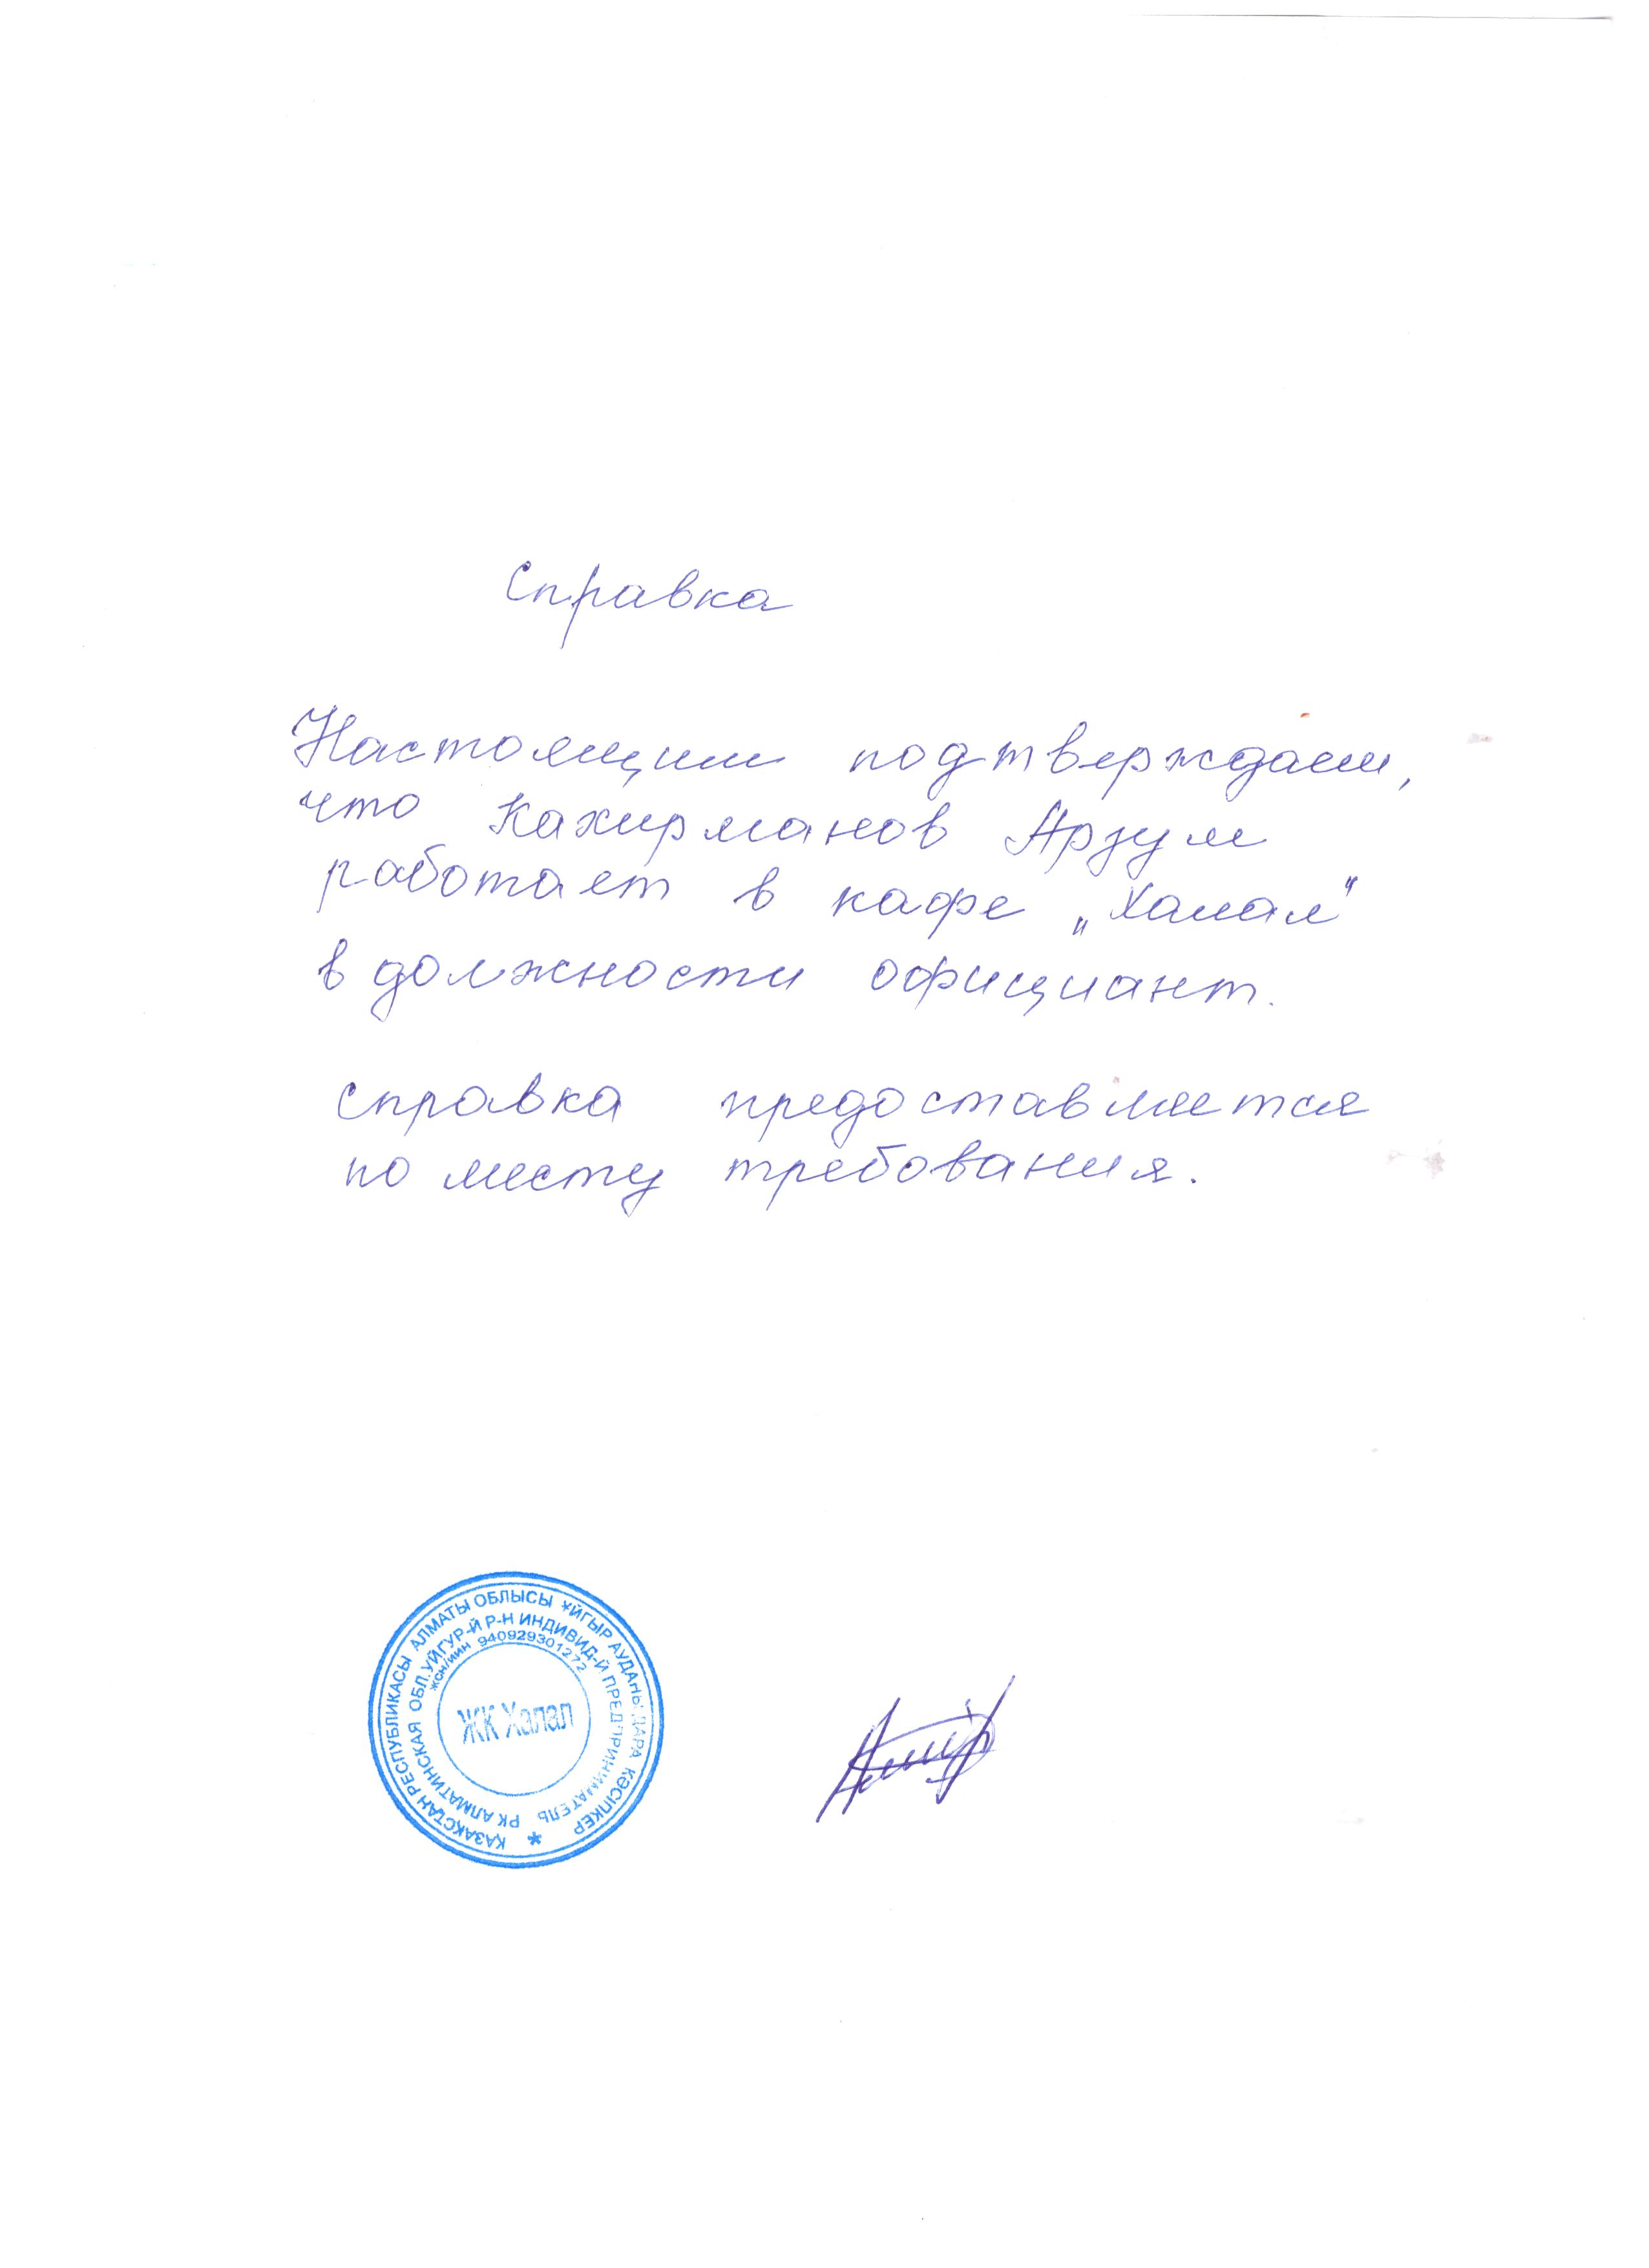 Справка
Настоящим подтверждаем,
что Кахирманов Арзум
работает в кафе „Халал"
в должности официант.
Справка предоставляется
по месту требования.
ҚАЗАҚСТАН РЕСПУБЛИКАСЫ АЛМАТЫ ОБЛЫСЫ ҰЙҒЫР АУДАНЫ ДАРА КӘСІПКЕР
РК АЛМАТИНСКАЯ ОБЛ.УЙГУР-Й Р-Н ИНДИВИД-Й ПРЕДПРИНИМАТЕЛЬ
ЖСН/ИИН 940929301272
ЖК Халал